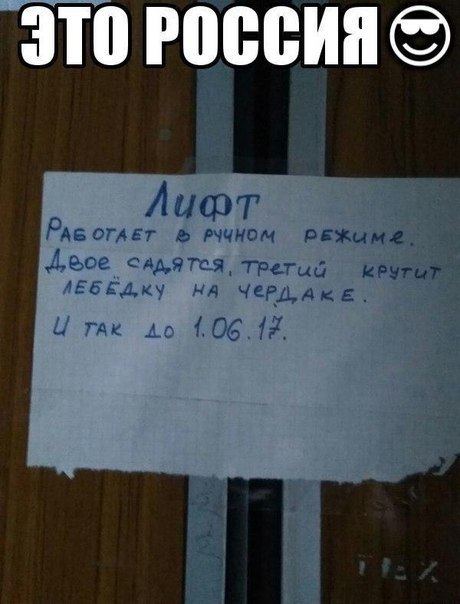 ЭТО РОССИЯ😎
Лифт
Работает в ручном режиме.
Двое садятся, третий крутит
лебёдку на чердаке.
И так до 1.06.17.